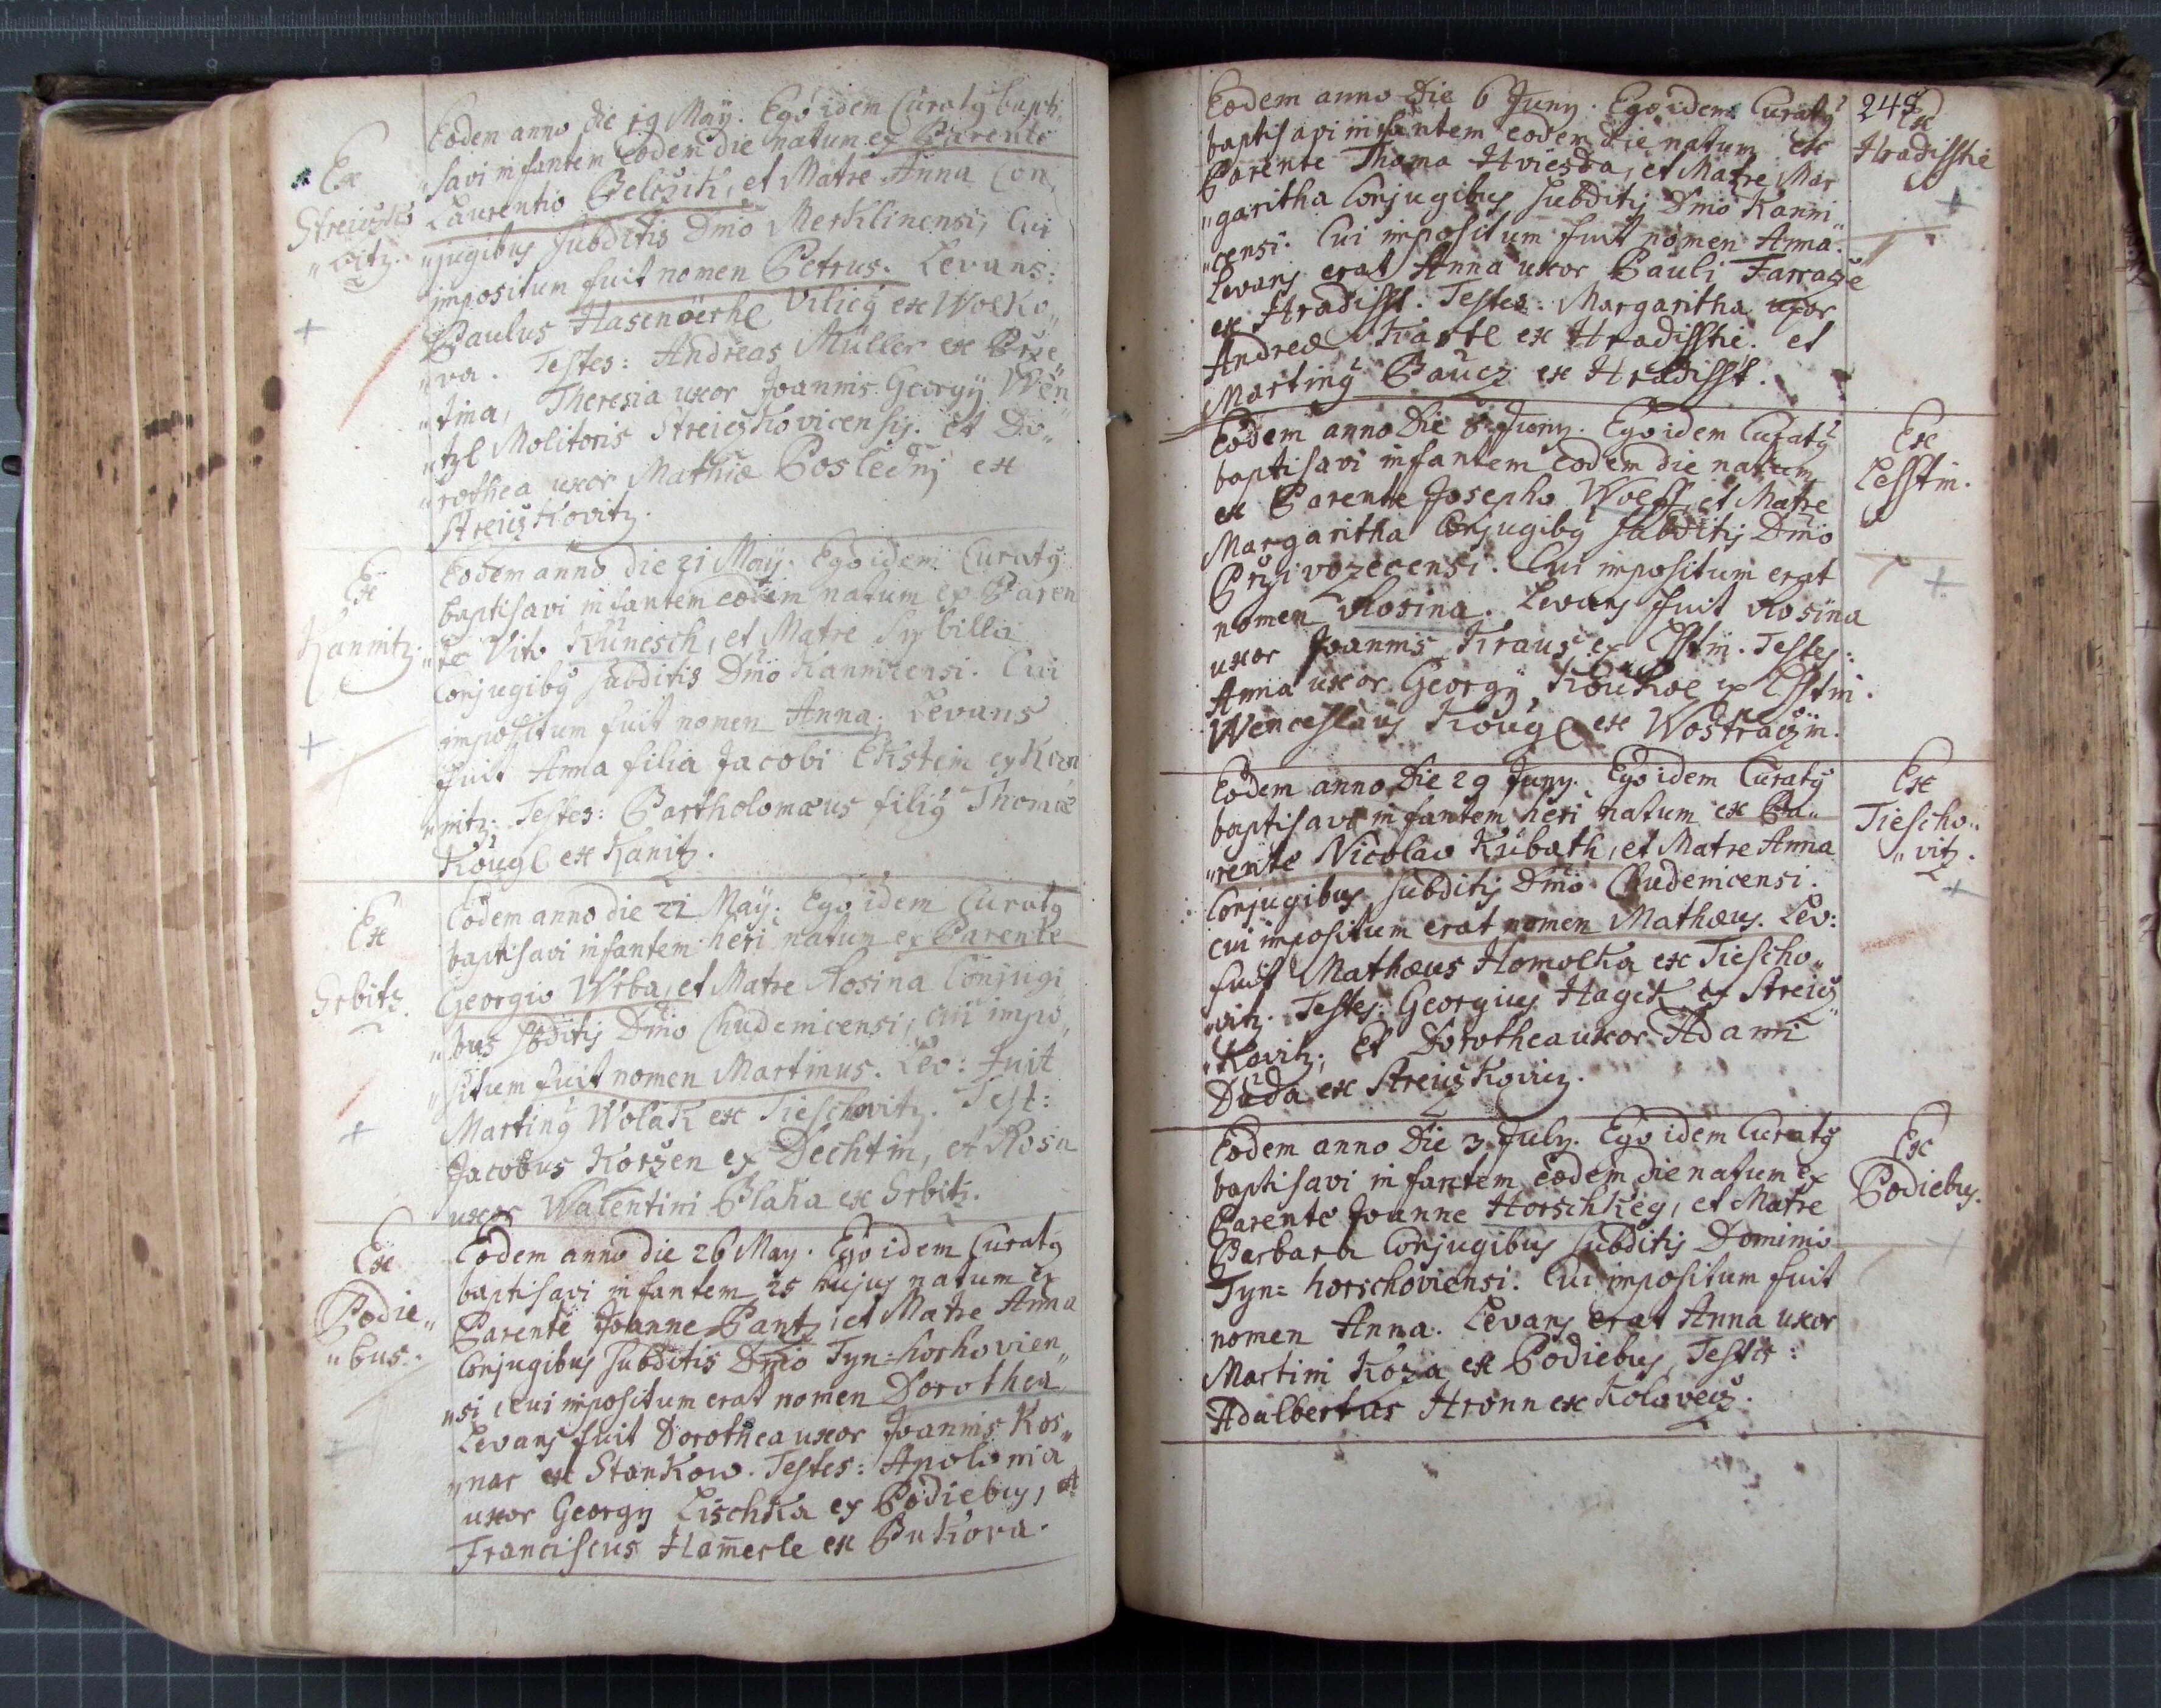 Ex
Streiczko
"vitz.
Eodem anno die 19 Maÿ. Ego idem Curatꝰ bapti
"savi infantem eodem die natum ex Parente
Laurentio Belczik, et Matre Anna Con
"jugibus subditis Dnō Merklinensi, Cui
impositum fuit nomen Petrus. Levans:
Paulus Hasenöerhl Vilicꝰ ex Wolko"
"va. Testes: Andreas Müller ex Prze
"tina, Theresia uxor Joannis Georgÿ Wen
"tzl Molitoris Streiczkovicensis. et Do"
"rothea uxor Mathiæ Poslednj ex
Streiczkovitz.
Ex
Kannitz.
Eodem anno die 21 Maÿ. Ego idem Curatꝰ
baptisavi infantem eodem natum ex Paren
"te Vito Kunesch, et Matre Sybilla
Conjugibꝰ subditis Dnō Kannicensi. Cui
impositum fuit nomen Anna. Levans
fuit Anna filia Jacobi Ekstein ex Kan
"nitz. Testes: Bartholomæus filiꝰ Thomæ
Kougl ex Kanitz.
Ex
Srbitz.
Eodem anno die 22 Maÿ. Ego idem Curatꝰ
baptisavi infantem heri natum ex Parente
Georgio Wrba, et Matre Rosina Conjugi
"bus sbditis Dnō Chudenicensi, cui impo"
"situm fuit nomen Martinus. Lev: Fuit
Martinꝰ Wolak ex Tieschovitz. Test:
Jacobus Korzen ex Dechtin, et Rosa
uxor Walentini Blaha ex Srbitz.
Ex
Podie"
"bus.
Eodem anno die 26 May. Ego idem Curatꝰ
baptisavi infantem 25 hujus natum ex
Parente Joanne Pantz, et Matre Anna
Conjugibus subditis Dnō Tyn=horhovien"
"si, cui impositum erat nomen Dorothea
Levans fuit Dorothea uxor Joannis Kos"
"nar ex Stankow. Testes: Apolonia
uxor Georgy Lischka ex Podiebus, et
Franciscus Ham̄erle ex Pukova.
248
Ex
Hradisstie
Eodem anno Die 6 Juny. Ego idem Curatꝰ
baptisavi infantem eodem die natum ex
Parente Thoma Hviezda, et Matre Mar
"garitha Conjugibus subditis Dnō Kanni"
"censi. Cui impositum fuit nomen Anna.
Levans erat Anna uxor Pauli Farraze
ex Hradisst. Testes: Margaritha uxor
Andreæ Kastl ex Hradisstie. et
Martinꝰ Paucz ex Hradisst.
Ex
Lesstin.
Eodem anno Die 8 Juny. Ego idem Curatꝰ
baptisavi infantem eodem die natum
ex Parente Josepho Wolff, et Matre
Margaritha Conjugibꝰ subditis Dnō
Przivozecensi. Cui impositum erat
nomen Rosina. Levans fuit Rosina
uxor Joannis Kraus ex Lsstin. Testes:
Anna uxor Georgÿ Koukol ex Lsstin.
Wenceslaus Kougl ex Wostraczin.
Ex
Tiescho"
"vitz.
Eodem anno Die 29 Juny. Ego idem Curatꝰ
baptisavi infantem heri natum ex Pa"
"rente Nicolao Kubath, et Matre Anna
Conjugibus subditis Dnō Chudenicensi.
cui impositum erat nomen Mathæus. Lev:
fuit Mathæus Homolka ex Tiescho"
"vitz. Testes: Georgius Hagek ex Streicz"
"kovitz, Et Dorothea uxor Adami
Duda ex Streiczkovicz.
Ex
Podiebus.
Eodem anno Die 3 July. Ego idem Curatꝰ
baptisavi infantem eodem die natum ex
Parente Joanne Horschkey, et Matre
Barbara Conjugibus subditis Domino
Tyn= horschoviensi. Cui impositum fuit
nomen Anna. Levans erat Anna uxor
Martini Koza ex Podiebus, Testis:
Adalbertus Hronn ex Kolovecz.